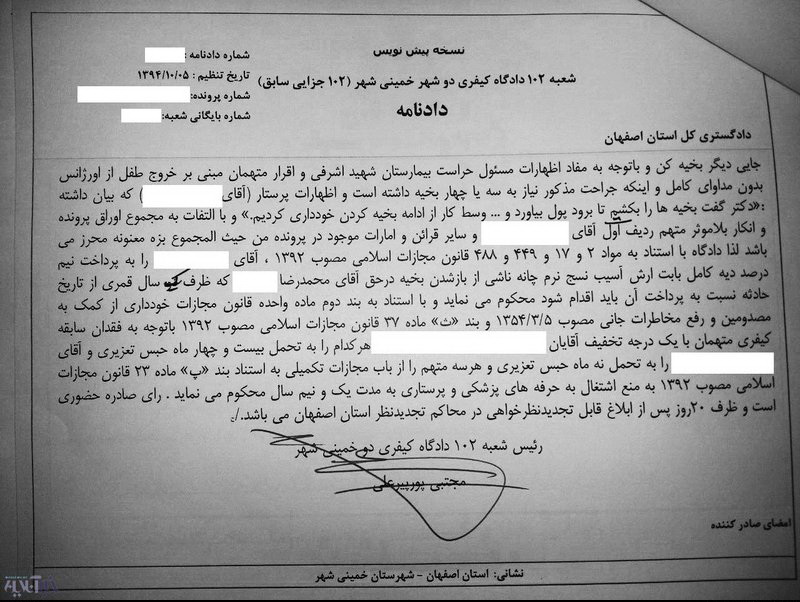 نسخه پیش نویس
شماره دادنامه :
تاریخ تنظیم : ۱۳۹۴/۱۰/۰۵
شماره پرونده:
شماره بایگانی شعبه:
شعبه ۱۰۲ دادگاه کیفری دو شهر خمینی شهر (۱۰۲ جزایی سابق)
دادنامه
دادگستری کل استان اصفهان
جایی دیگر بخیه کن و باتوجه به مفاد اظهارات مسئول حراست بیمارستان شهید اشرفی و اقرار متهمان مبنی بر خروج طفل از اورژانس
بدون مداوای کامل و اینکه جراحت مذکور نیاز به سه یا چهار بخیه داشته است و اظهارات پرستار (آقای ) که بیان داشته
:«دکتر گفت بخیه ها را بکشم تا برود پول بیاورد و ... وسط کار از ادامه بخیه کردن خودداری کردیم.» و با التفات به مجموع اوراق پرونده
و انکار بلاموثر متهم ردیف اول آقای و سایر قرائن و امارات موجود در پرونده من حیث المجموع بزه معنونه محرز می
باشد لذا دادگاه با استناد به مواد ۲ و ۱۷ و ۴۴۹ و ۴۸۸ قانون مجازات اسلامی مصوب ۱۳۹۲ ، آقای را به پرداخت نیم
درصد دیه کامل بابت ارش آسیب نسج نرم چانه ناشی از بازشدن بخیه درحق آقای محمدرضا که ظرف سال قمری از تاریخ
حادثه نسبت به پرداخت آن باید اقدام شود محکوم می نماید و با استناد به بند دوم ماده واحده قانون مجازات خودداری از کمک به
مصدومین و رفع مخاطرات جانی مصوب ۱۳۵۴/۳/۵ و بند «ث» ماده ۳۷ قانون مجازات اسلامی مصوب ۱۳۹۲ باتوجه به فقدان سابقه
کیفری متهمان با یک درجه تخفیف آقایان هرکدام را به تحمل بیست و چهار ماه حبس تعزیری و آقای
را به تحمل نه ماه حبس تعزیری و هرسه متهم را از باب مجازات تکمیلی به استناد بند «پ» ماده ۲۳ قانون مجازات
اسلامی مصوب ۱۳۹۲ به منع اشتغال به حرفه های پزشکی و پرستاری به مدت یک و نیم سال محکوم می نماید . رای صادره حضوری
است و ظرف ۲۰روز پس از ابلاغ قابل تجدیدنظرخواهی در محاکم تجدیدنظر استان اصفهان می باشد./.
رئیس شعبه ۱۰۲ دادگاه کیفری دو خمینی شهر
مجتبی پورپیرعلی
امضای صادر کننده
نشانی: استان اصفهان - شهرستان خمینی شهر